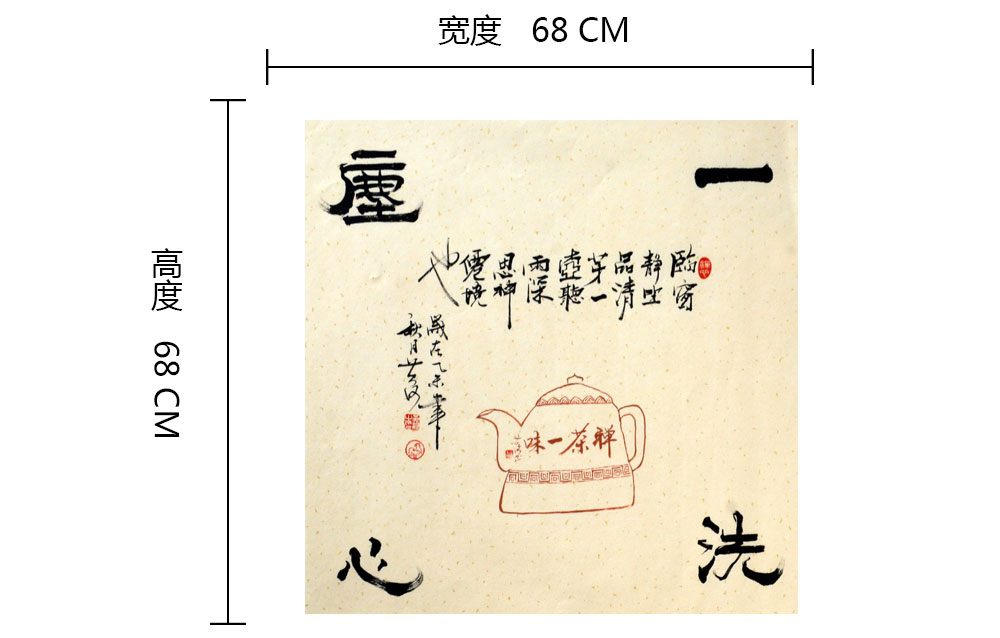 宽度 68 CM
高度 68 CM
一
洗
塵
心
臨窗
静坐
品清
芽一
壺聽
雨深
思神
僊境
也
歲在乙未肇
秋月
禅茶一味